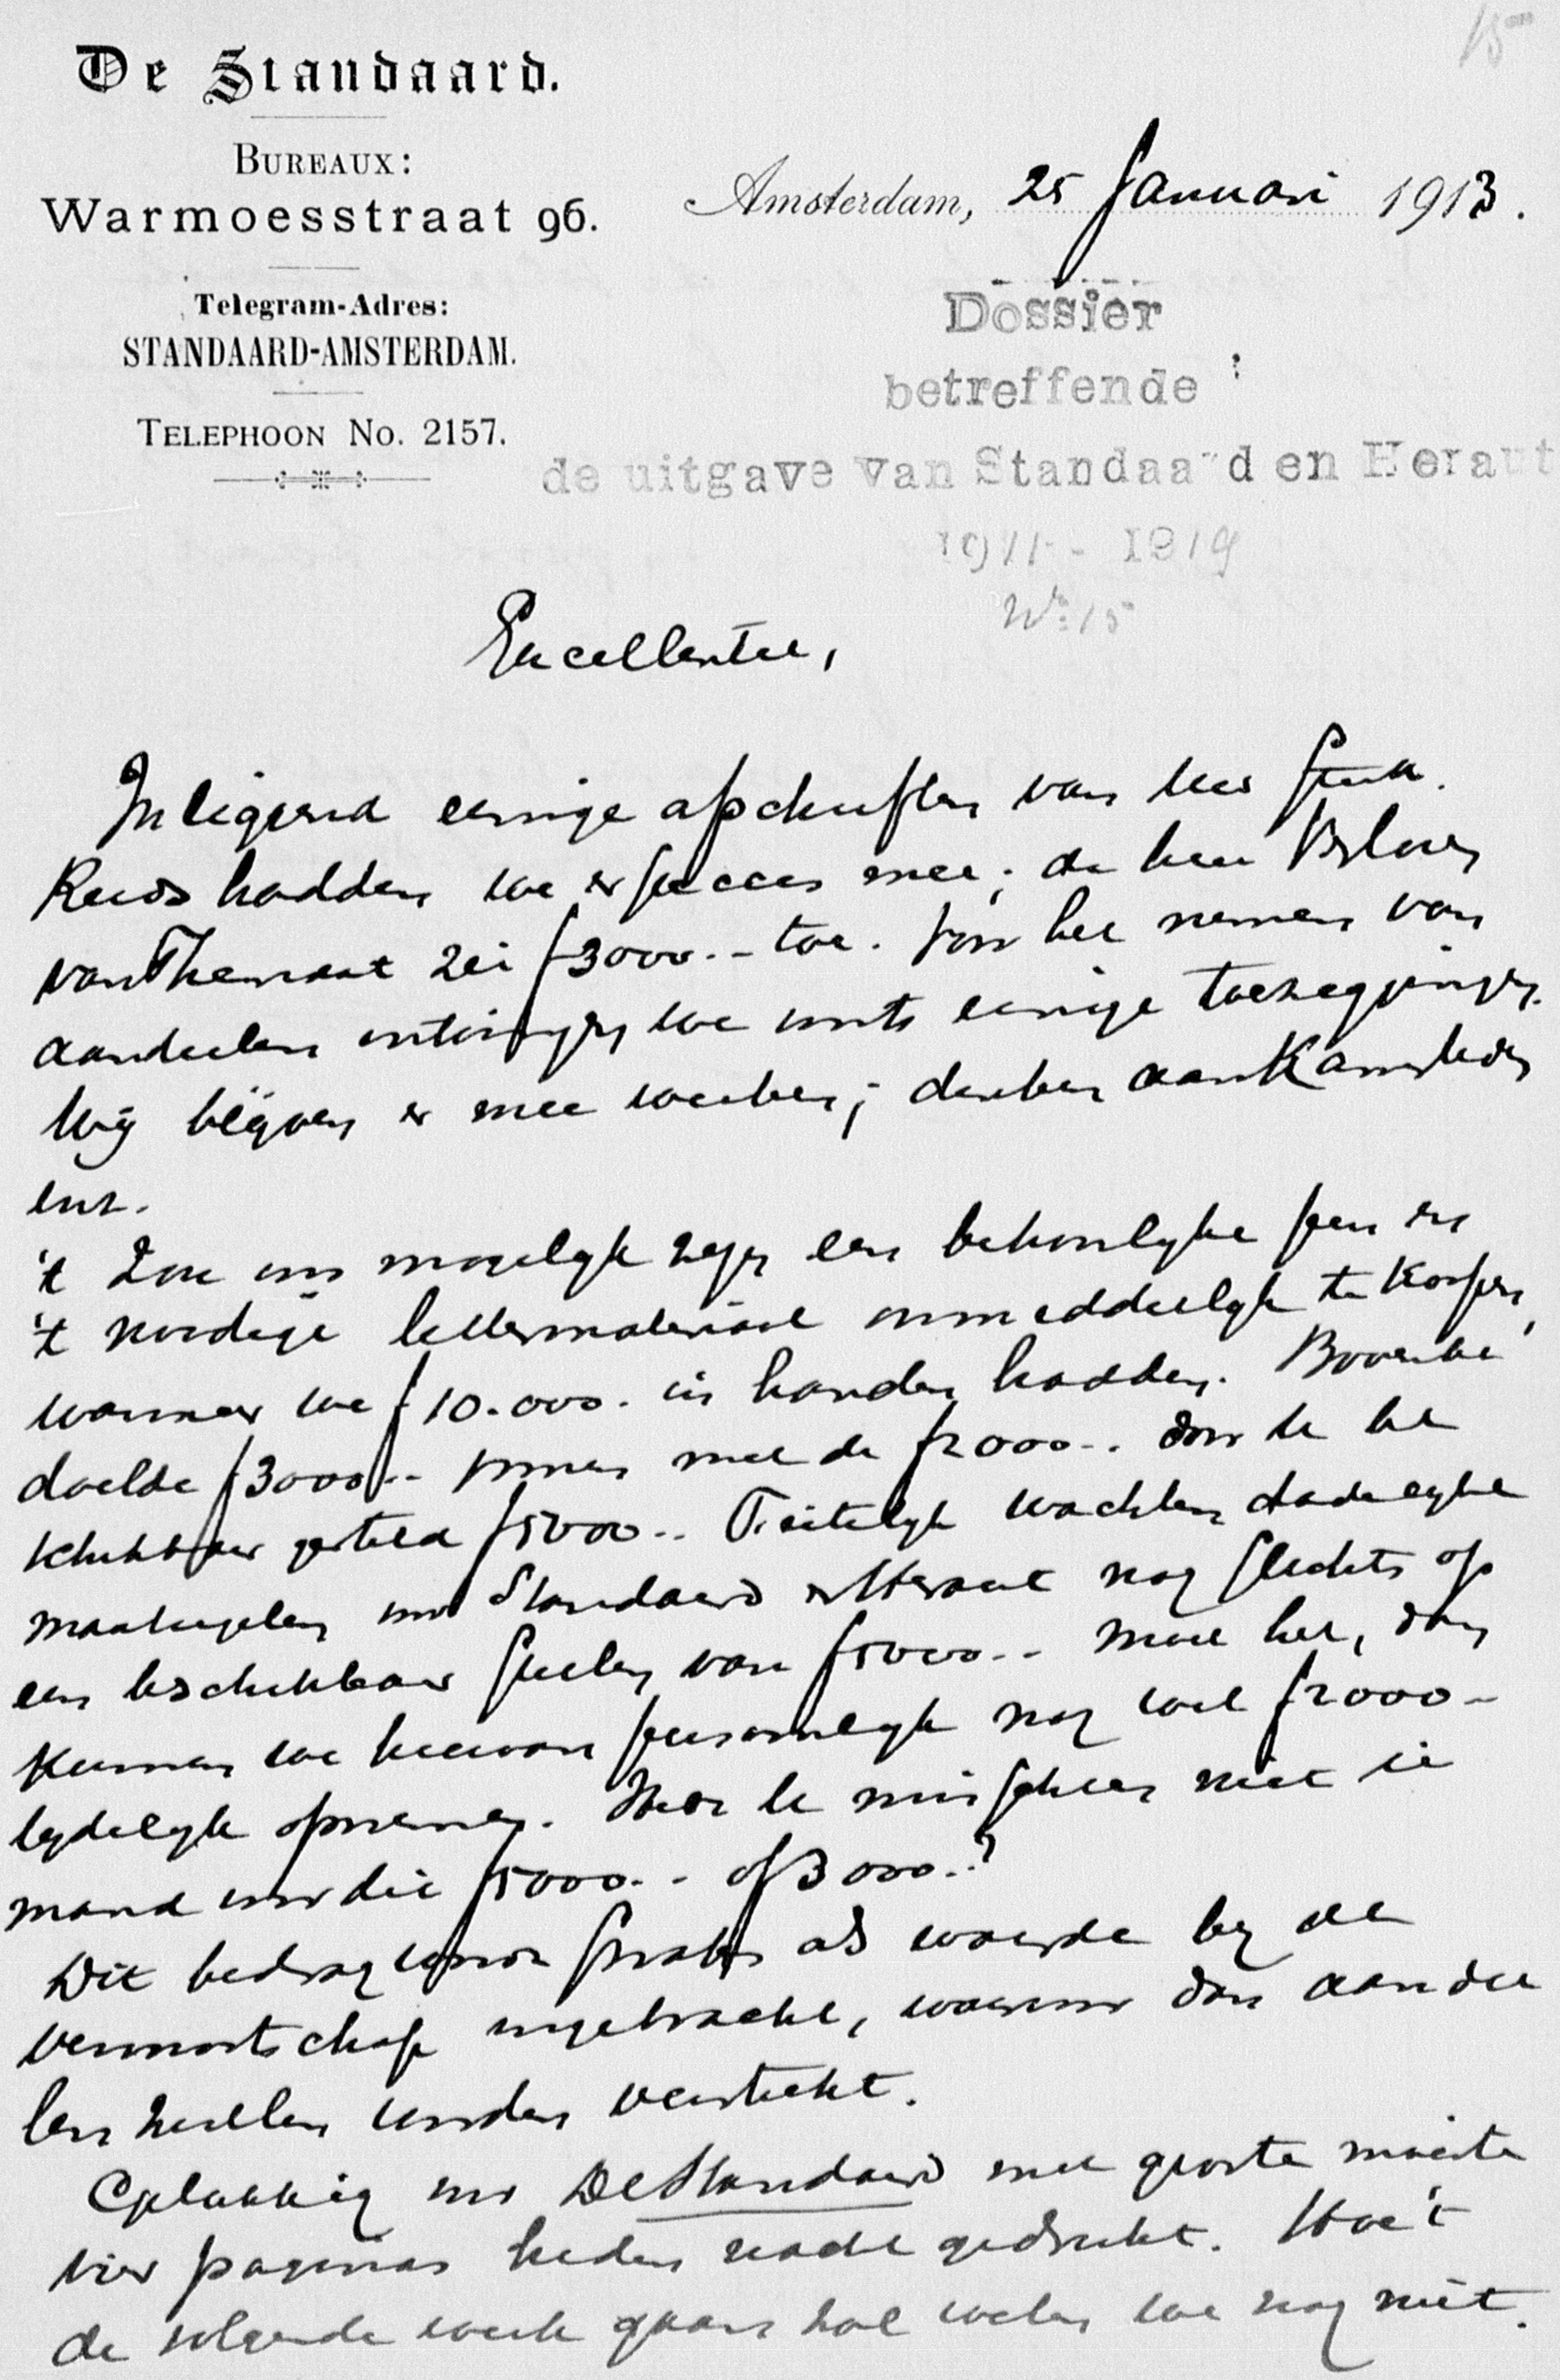 15
De Standaard.
BUREAUX:
Warmoesstraat 96.
Telegram-Adres:
STANDAARD-AMSTERDAM.
TELEPHOON No. 2157.
Amsterdam, 25 Januari 1913.
Dossier
betreffende
de uitgave van Standaard en Heraut
1911 - 1919
No: 15
Excellentie,
Inliggend eenige afschriften van het stuk.
Reeds hadden we er succes mee; de heer
van Themaat zei f 3000.- toe. Voor het nemen van
aandeelen ontvingen we reeds eenige toezeggingen.
Wij blijven er mee werken; denken aan Kamerleden
enz.
't Zou ons mogelijk zijn een behoorlijke pers en
't noodige lettermateriaal onmiddellijk te koopen,
wanneer we f 10.000. in handen hadden. Bovenbe
doelde f 3000.- met de f 2000.- door u be
schikbaar gesteld f 5000.- Feitelijk wachten dadelijke
maatregelen voor Standaard en Heraut nog slechts op
een beschikbaar stellen van f 5000.- Moet het, dan
kunnen we hiervan persoonlijk nog wel f 2000-
tijdelijk opnemen. Weet u misschien niet ie
mand voor die f 5000.- of 3000.-?
Dit bedrag wordt straks als waarde bij de
vennootschap ingebracht, waarvoor dan aandee
len zullen worden verstrekt.
Gelukkig is De Standaard met groote moeite
vier pagina's heden nacht gedrukt. Hoe 't
de volgende week gaan zal weten we nog niet.